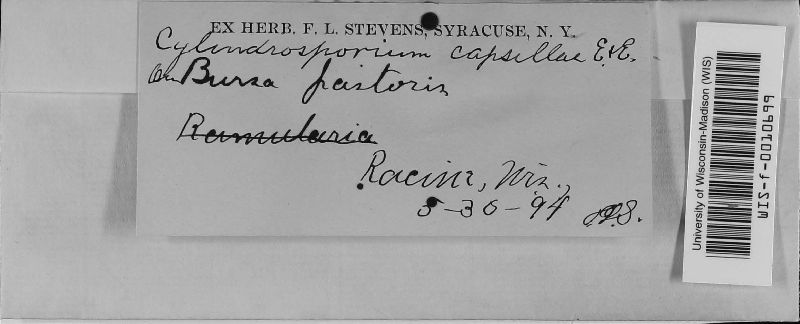 EX HERB. F. L. STEVENS, SYRACUSE, N. Y.
Cylindrosporium capsellae E.&E.
On Bursa pastoris
Ramularia
Racine, Wis.
5-30-94
University of Wisconsin-Madison (WIS)
WIS-f-0010699